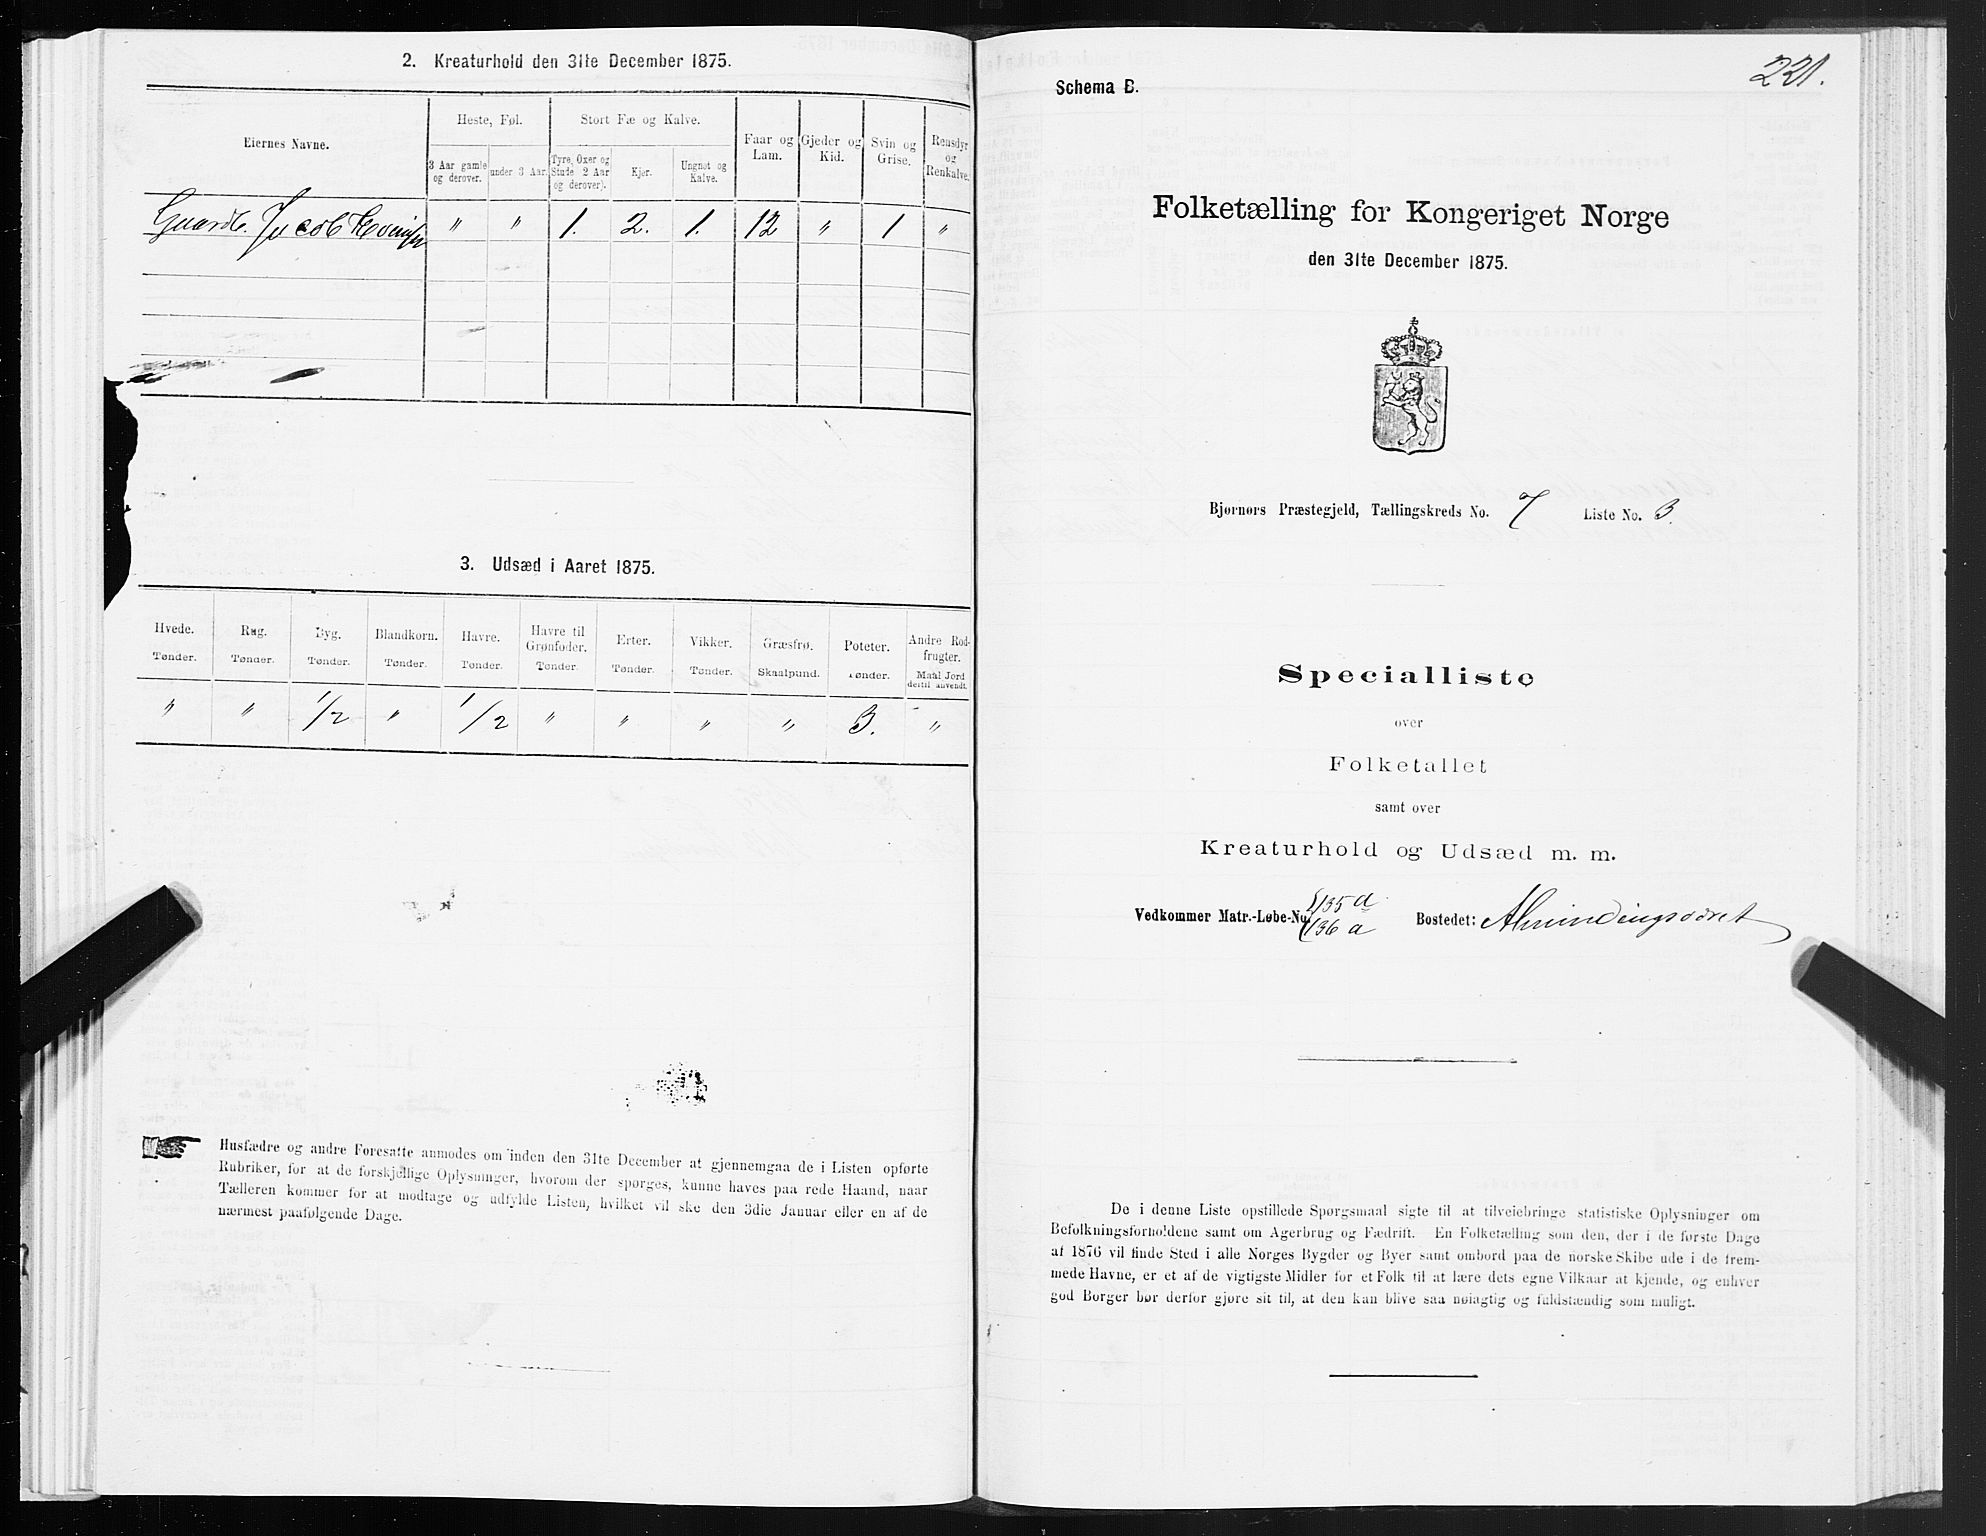 2. Kreaturhold den 31te December 1875.
Eiernes Navne.
Heste, Føl.
Stort Fæ og Kalve.
Faar og Lam.
Gjeder og Kid.
Svin og Grise.
Rensdyr og Renkalve.
3 Aar gamle og derover.
under 3 Aar.
Tyre, Oxer og Stude 2 Aar og derover).
Kjør.
Ungnøt og Kalve.
Gaardb. Jacob " " 1. 2. 1. 12 " 1 "
3. Udsæd i Aaret 1875.
Hvede. Rug. Byg. Blandkorn. Havre. Havre til Grønfoder. Erter. Vikker. Græsfrø. Poteter. Andre Rodfrugter.
Tønder. Tønder. Tønder. Tønder. Tønder. Tønder. Tønder. Tønder. Skaalpund. Tønder. Maal Jord dertil anvendt.
" " 1/2 " 1/2 " " " " 3. "
Husfædre og andre Foresatte anmodes om inden den 31te December at gjennemgaa de i Listen opførte
Rubriker, for at de forskjellige Oplysninger, hvorom der spørges, kunne haves paa rede Haand, naar
Tælleren kommer for at modtage og udfylde Listen, hvilket vil ske den 3die Januar eller en af de
nærmest paafølgende Dage.
221.
Schema B.
Folketælling for Kongeriget Norge
den 31te December 1875.
Bjørnørs Præstegjeld, Tællingskreds No. 7 Liste No. 3.
Specialliste
over
Folketallet
samt over
Kreaturhold og Udsæd m. m.
Vedkommer Matr.-Løbe-No. {135 d. 136 a Bostedet: Almindingsøret
De i denne Liste opstillede Spørgsmaal sigte til at tilveiebringe statistiske Oplysninger om
Befolkningsforholdene samt om Agerbrug og Fædrift. En Folketælling som den, der i de første Dage
af 1876 vil finde Sted i alle Norges Bygder og Byer samt ombord paa de norske Skibe ude i de frem-
mede Havne, er et af de vigtigste Midler for et Folk til at lære dets egne Vilkaar at kjende, og enhver
god Borger bør derfor gjøre sit til, at den kan blive saa nøiagtig og fuldstændig som muligt.